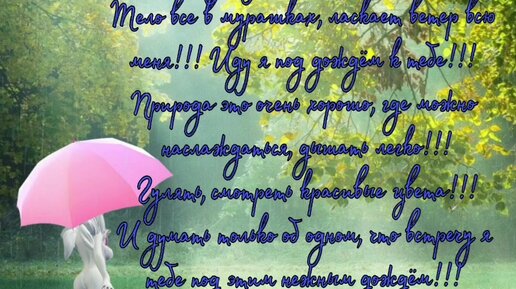 Тело все в мурашках, ласкает ветер всю
меня!!! Иду я под дождём к тебе!!!
Природа это очень хорошо, где можно
наслаждаться, дышать легко!!!
Гулять, смотреть красивые цвета!!!
И думать только об одном, что встречу я
тебе под этим нежным дождём!!!